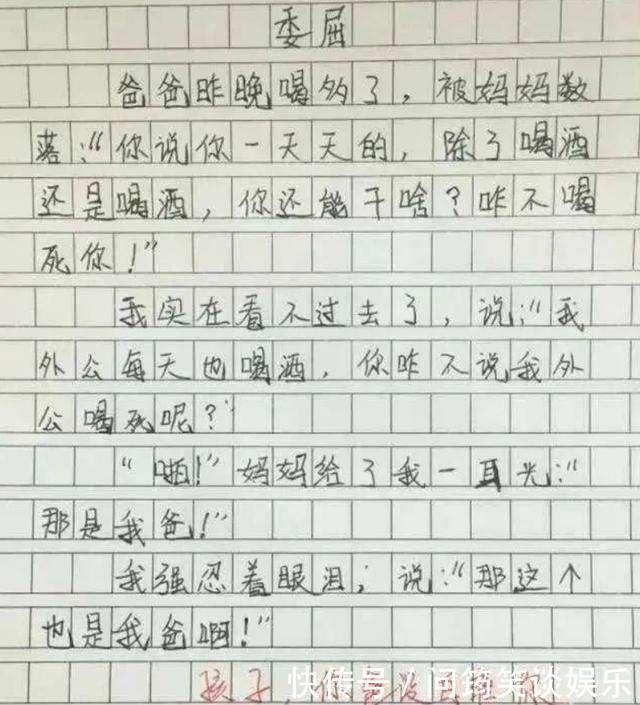 委屈
爸爸昨晚喝多了，被妈妈数
落："你说你一天天的，除了喝酒
还是喝酒，你还能干啥？咋不喝
死你！"
我实在看不过去了，说："我
外公每天也喝酒，你咋不说我外
公喝死呢？"
"啪！"妈妈给了我一耳光："
那是我爸！"
我强忍着眼泪；说："那这个
也是我爸啊！"
孩子，你
快传号/问筠笑谈娱乐